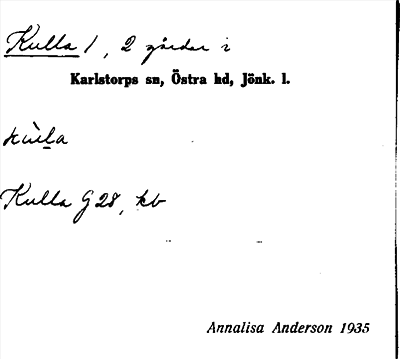 Kulla 1, 2 gårdar i
Karlstorps sn, Östra hd, Jönk. l.
kùl̠a
Kulla G28, kb
Annalisa Anderson 1935